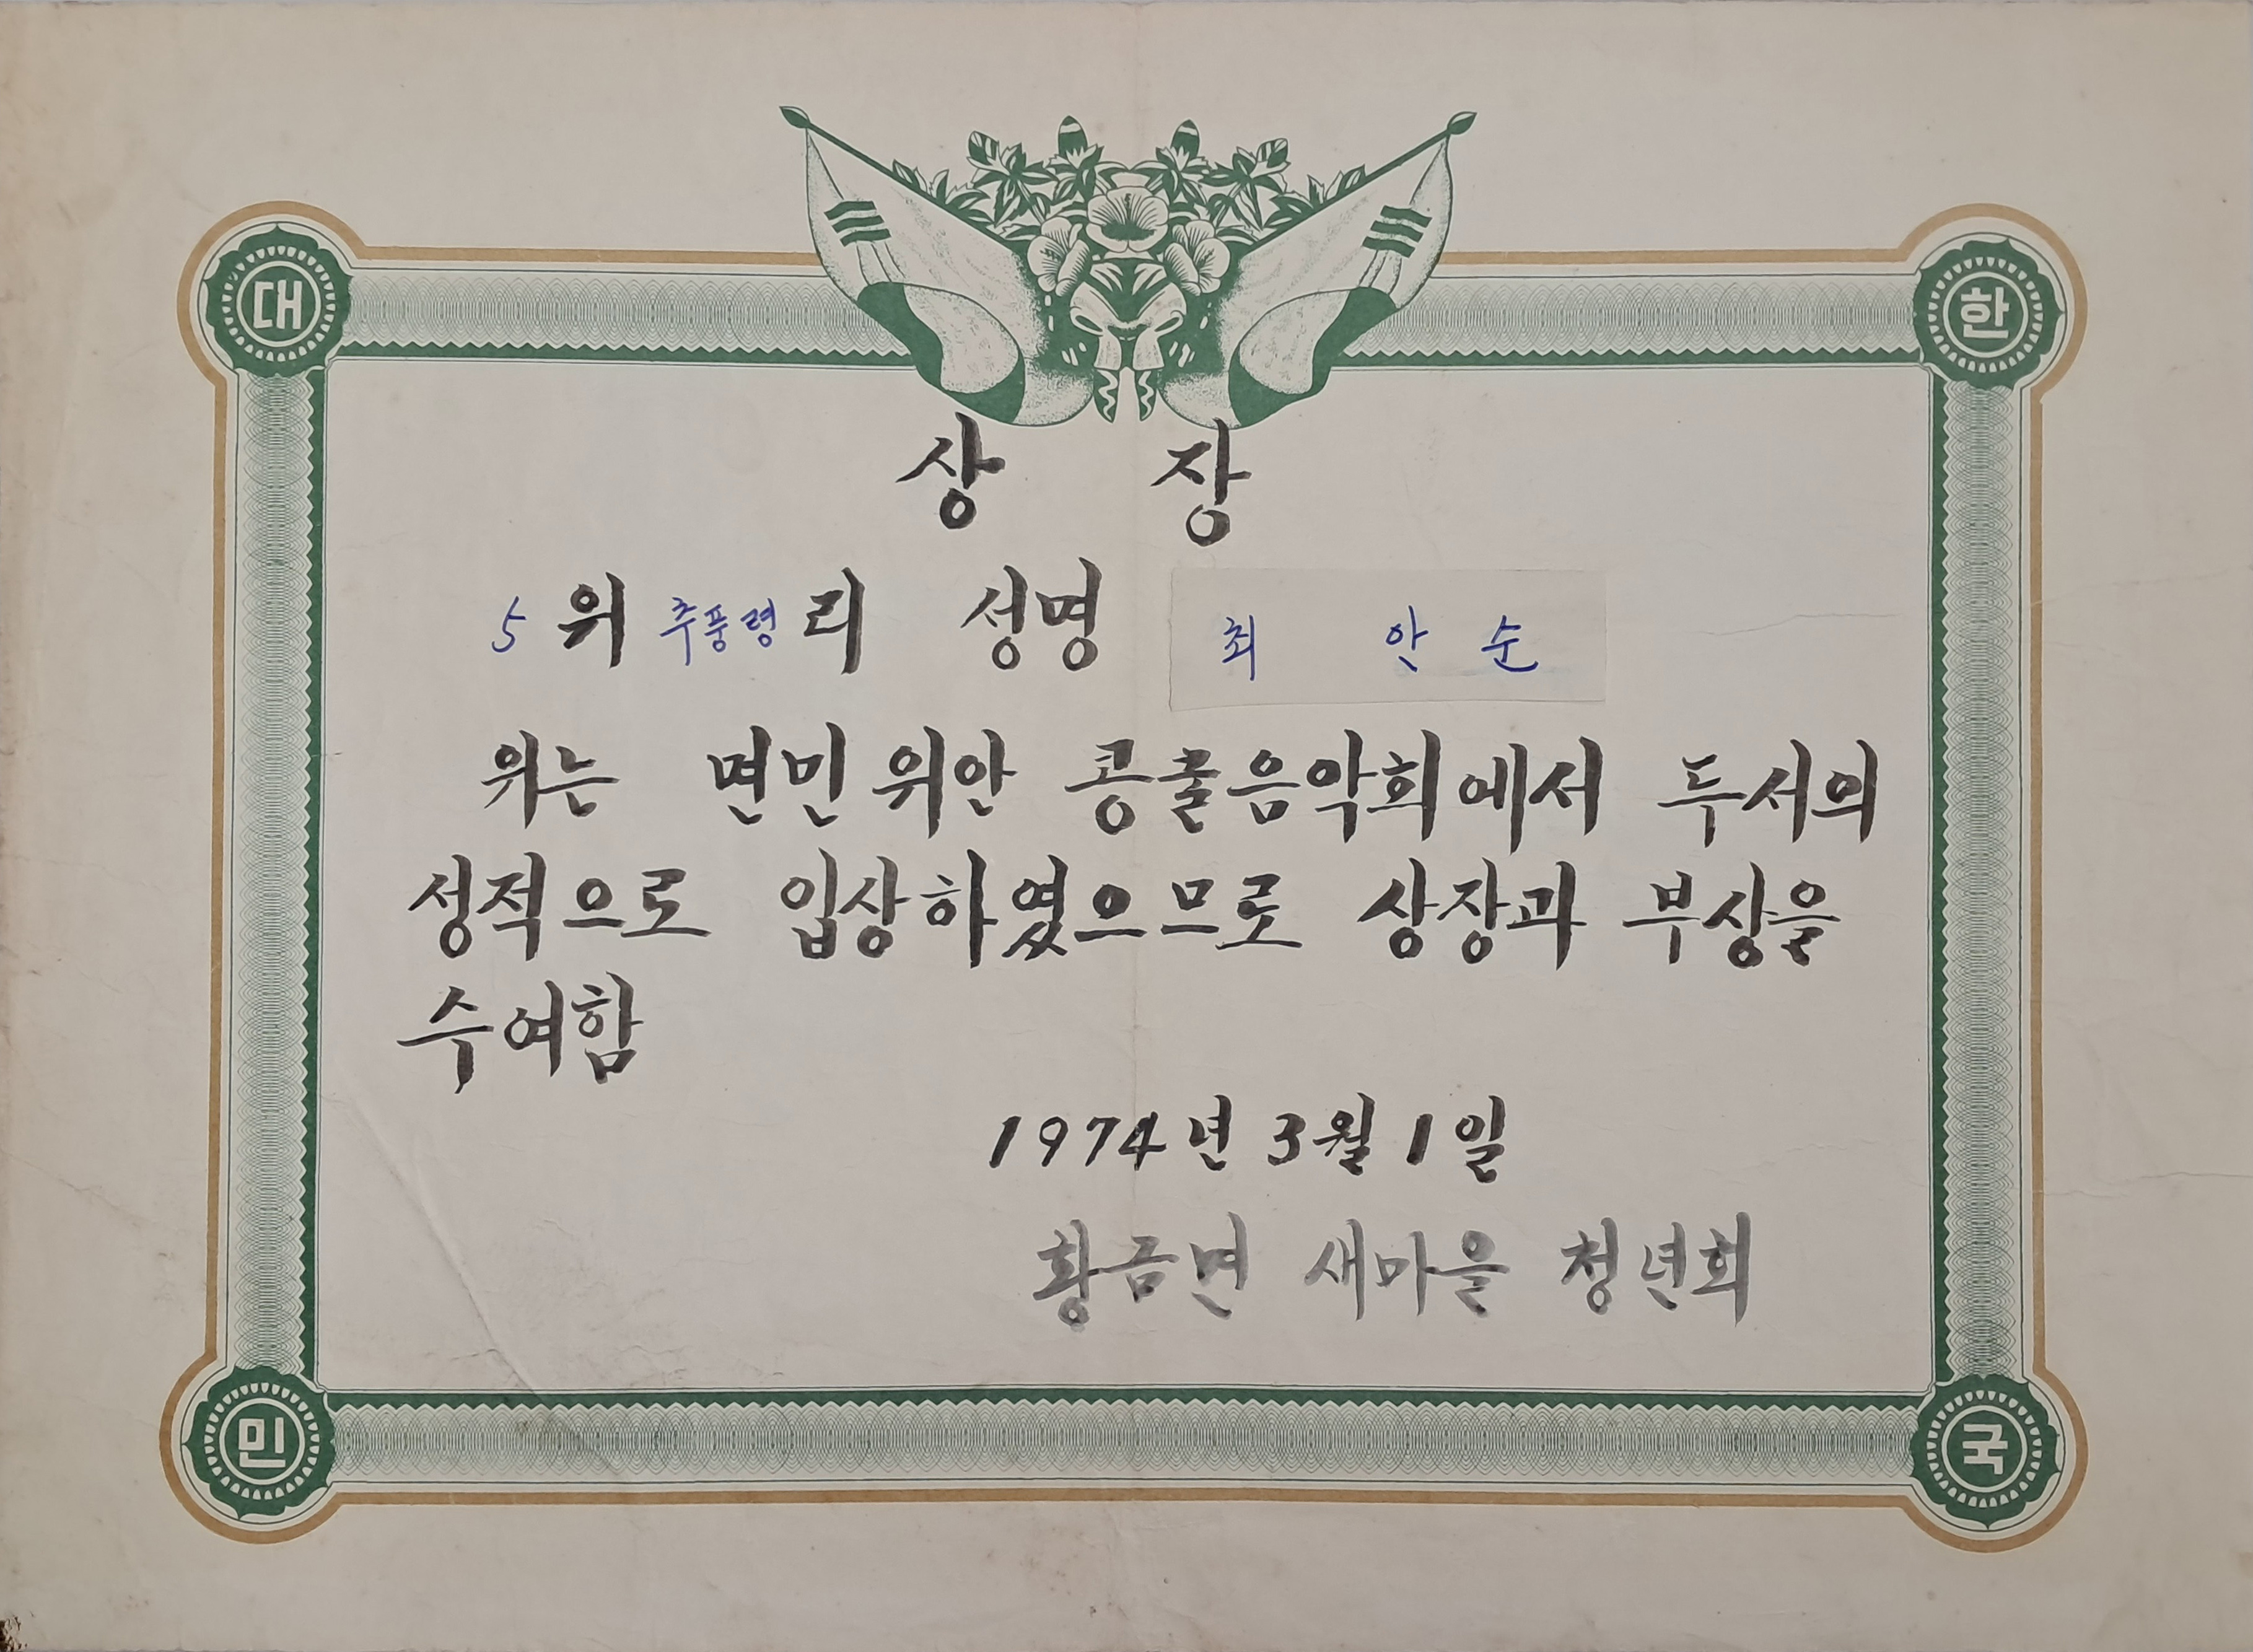 대 한
상 장
5위 추풍령리 성명 최 안 순
위는 면민위안 콩쿨음악회에서 두서의
성적으로 입상하였으므로 상장과 부상을
수여함
1974년 3월 1일
황금면 새마을 청년회
민 국